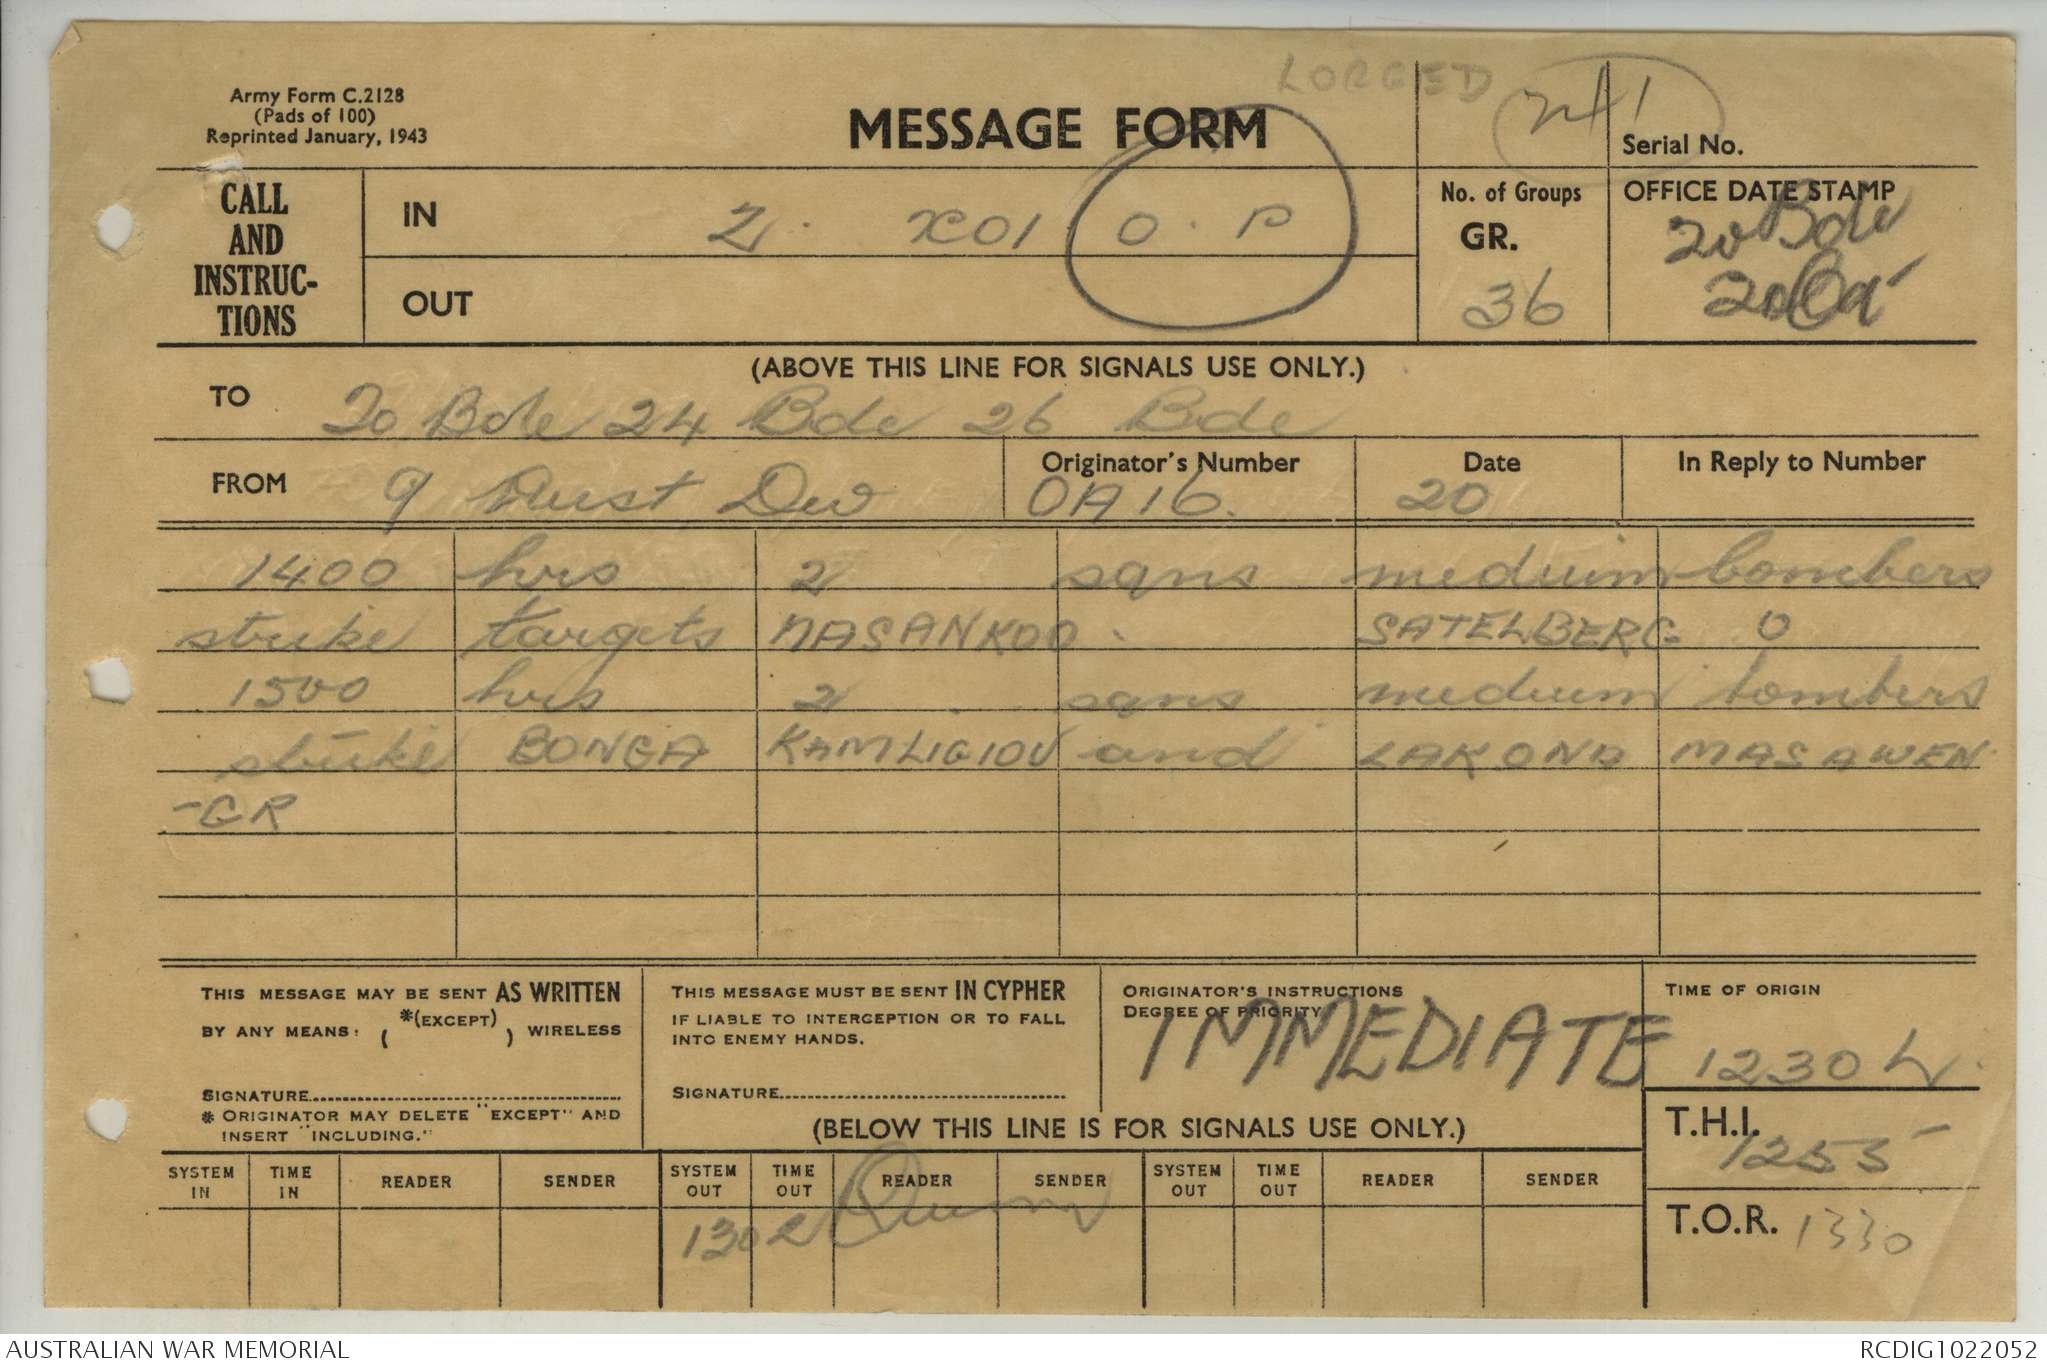 LORGED
Army Form C.2128
(Pads of 100)
Reprinted January, 1943
MESSAGE FORM
Serial No.
CALL AND INSTRUC-TIONS
IN Z. XO1 O.P
OUT
No. of Groups
GR.
36
OFFICE DATE STAMP
20 Bde
(ABOVE THIS LINE FOR SIGNALS USE ONLY.)
TO 20 Bde 24 Bde 26 Bde
FROM 9 Aust Div Originator's Number OA16. Date 20 In Reply to Number
1400 hrs 2 sqns medium bombers
strike targets NASANKOO. SATELBERG O
1500 hrs 2 sqns medium bombers
strike BONGA KAMLIGIOU and LAKONA MASAWEN
-GR
THIS MESSAGE MAY BE SENT AS WRITTEN
BY ANY MEANS: ( *(EXCEPT) ) WIRELESS
SIGNATURE
* ORIGINATOR MAY DELETE "EXCEPT" AND
INSERT "INCLUDING."
THIS MESSAGE MUST BE SENT IN CYPHER
IF LIABLE TO INTERCEPTION OR TO FALL
INTO ENEMY HANDS.
SIGNATURE
ORIGINATOR'S INSTRUCTIONS
DEGREE OF PRIORITY
IMMEDIATE
TIME OF ORIGIN
1230 L.
T.H.I.
1255
T.O.R. 1330
(BELOW THIS LINE IS FOR SIGNALS USE ONLY.)
SYSTEM IN TIME IN READER SENDER SYSTEM OUT TIME OUT READER SENDER SYSTEM OUT TIME OUT READER SENDER
1302
AUSTRALIAN WAR MEMORIAL RCDIG1022052